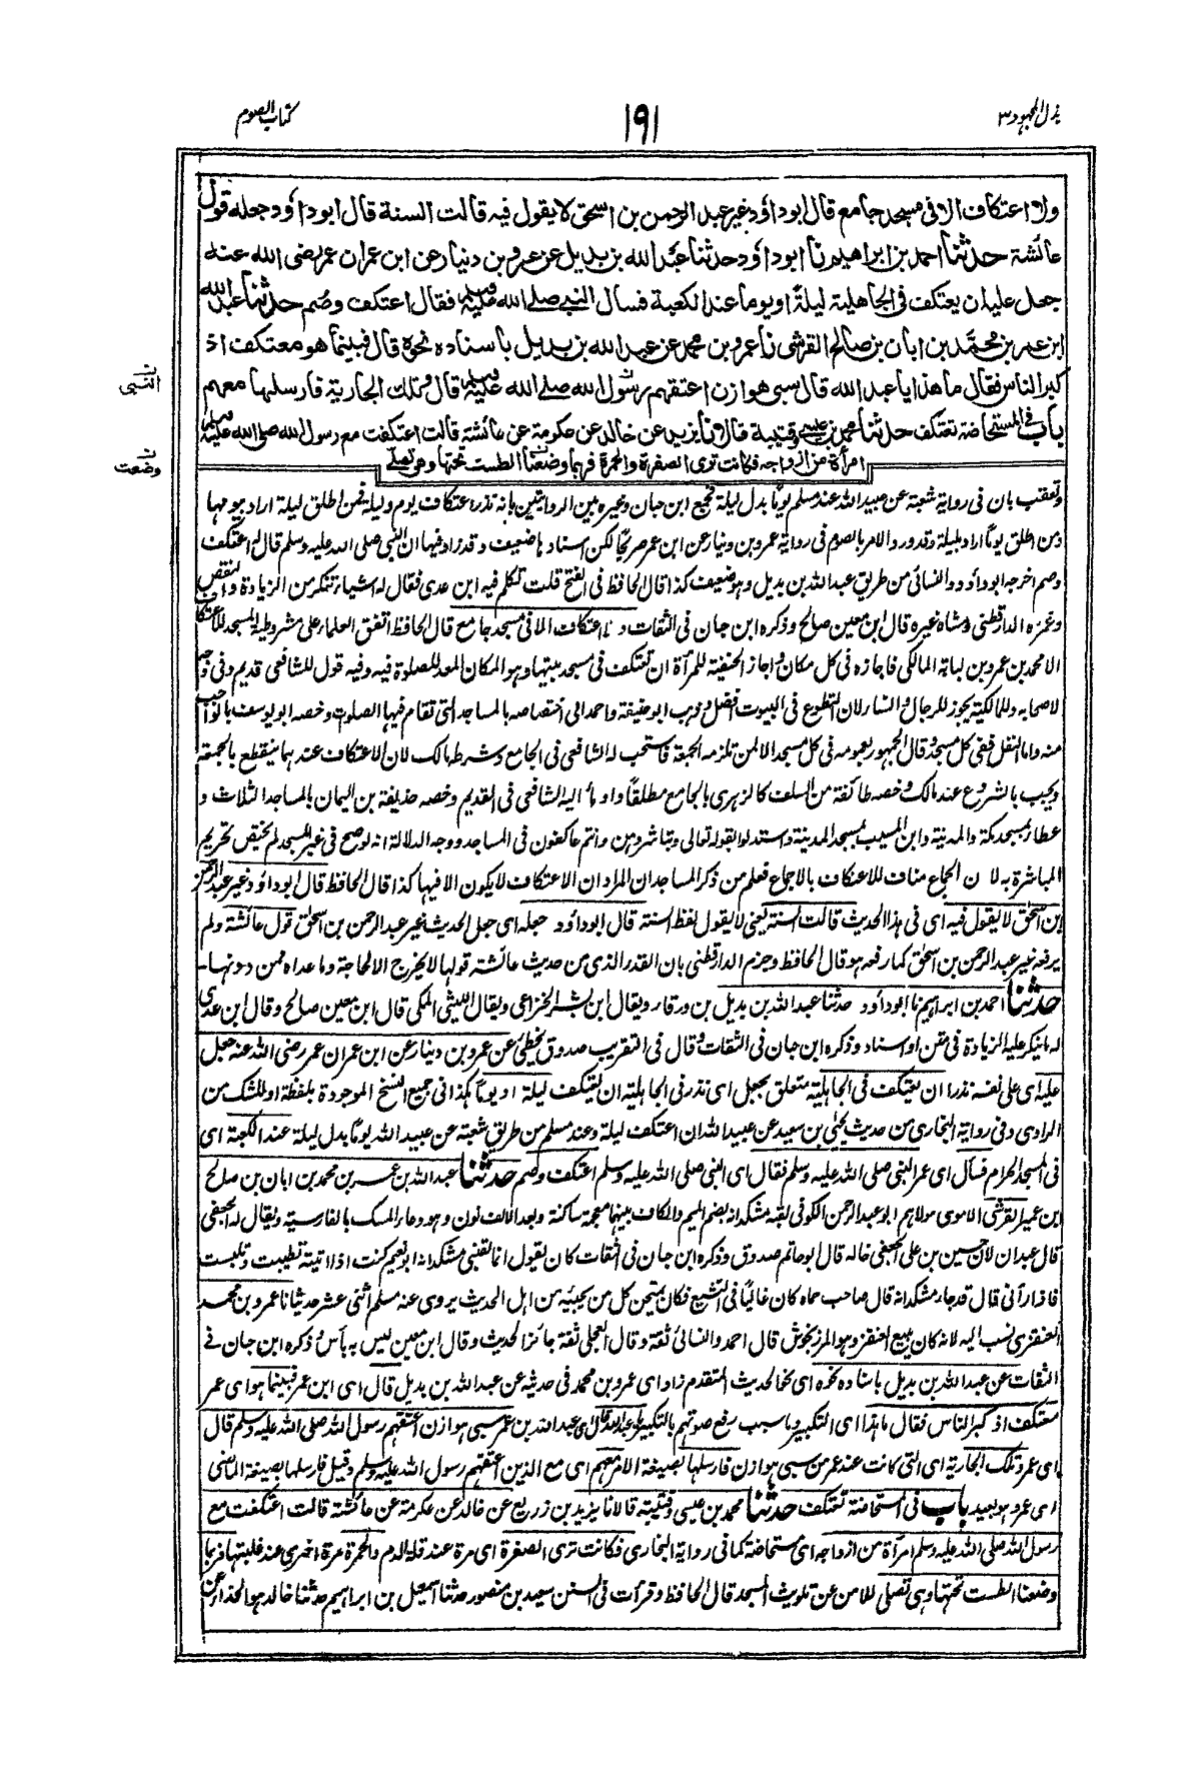 بذل المجهود ٣
١٩١
كتاب الصوم
ولا اعتكاف الا فى مسجد جامع قال ابوداؤد غير عبد الرحمن بن اسحق لا يقول فيه قالت السنة قال ابوداؤد جعله قول
عائشة حدثنا احمد بن ابراهيم نا ابوداؤد حدثنا عبد الله بن بديل عن عمرو بن دينار عن ابن عمر ان عمر رضى الله عنه
جعل عليه ان يعتكف فى الجاهلية ليلة او يوما عند الكعبة فسأل النبى صلى الله عليه وسلم فقال اعتكف وصم حدثنا عبد الله
ابن عمر بن محمد بن ابان بن صالح القرشى نا عمرو بن محمد عن عبد الله بن بديل باسناده نحوه قال فبينما هو معتكف اذ
كبر الناس فقال ما هذا يا عبد الله قال سبى هوازن اعتقهم رسول الله صلى الله عليه وسلم قال وتلك الجارية فارسلها معهم
النبى
باب فى المستحاضة تعتكف حدثنا محمد بن عيسى وقتيبة قالا نا يزيد عن خالد عن عكرمة عن عائشة قالت اعتكفت مع رسول الله صلى الله عليه وسلم
امرأة من ازواجه فكانت ترى الصفرة والحمرة فربما وضعنا الطست تحتها وهى تصلى
وضعت
وتعقب بان فى رواية شعبة عن عبيد الله عند مسلم يوما بدل ليلة فجمع ابن حبان وغيره بين الروايتين بانه نذر اعتكاف يوم وليلة فمن اطلق ليلة اراد بيومها
ومن اطلق يوما اراد بليلته وقد ورد الامر بالصوم فى رواية عمرو بن دينار عن ابن عمر صريحا لكن اسنادها ضعيف وقد زاد فيها ان النبى صلى الله عليه وسلم قال له اعتكف
وصم اخرجه ابوداؤد والنسائى من طريق عبد الله بن بديل وهو ضعيف كذا قال الحافظ فى الفتح قلت تكلم فيه ابن عدى فقال له اشياء تنكر من الزيادة والنقص
وغمزه الدارقطنى ومشاه غيره قال ابن معين صالح وذكره ابن حبان فى الثقات ولا اعتكاف الا فى مسجد جامع قال الحافظ اتفق العلماء على مشروطية المسجد للاعتكاف
الا محمد بن عمرو بن لبابة المالكى فاجازه فى كل مكان واجاز الحنفية للمرأة ان تعتكف فى مسجد بيتها وهو المكان المعد للصلوة فيه وفيه قول للشافعى قديم وفى وجه
لاصحابه وللمالكية يجوز للرجال والنساء لان التطوع فى البيوت افضل وذهب ابو حنيفة واحمد الى اختصاصه بالمساجد التى تقام فيها الصلوات وخصه ابو يوسف بالواجب
منه واما النفل ففى كل مسجد وقال الجمهور بعمومه فى كل مسجد الا لمن تلزمه الجمعة فاستحب له الشافعى فى الجامع وشرطه مالك لان الاعتكاف عندهما ينقطع بالجمعة
ويجب بالشروع عند مالك وخصه طائفة من السلف كالزهرى بالجامع مطلقا واومأ اليه الشافعى فى القديم وخصه حذيفة بن اليمان بالمساجد الثلاث و
عطاء بمسجد مكة والمدينة وابن المسيب بمسجد المدينة واستدلوا بقوله تعالى ولا تباشروهن وانتم عاكفون فى المساجد ووجه الدلالة انه لو صح فى غير المسجد لم يختص تحريم
المباشرة به لان الجماع مناف للاعتكاف بالاجماع فعلم من ذكر المساجد ان المراد ان الاعتكاف لا يكون الا فيها كذا قال الحافظ قال ابوداؤد وغير عبد الرحمن
ابن اسحق لا يقول فيه اى فى هذا الحديث قالت السنة يعنى لا يقول لفظ السنة قال ابوداؤد جعله اى جعل الحديث غير عبد الرحمن بن اسحق قول عائشة ولم
يرفعه غير عبد الرحمن بن اسحق كما رفعه هو قال الحافظ وجزم الدارقطنى بان القدر الذى من حديث عائشة قولها لا يخرج الا لحاجة وما عداه فمن دونها-
حدثنا احمد بن ابراهيم نا ابوداؤد حدثنا عبد الله بن بديل بن ورقاء ويقال ابن بشر الخزاعى ويقال الليثى المكى قال ابن معين صالح وقال ابن عدى
له ما ينكر عليه الزيادة فى متن او اسناد وذكره ابن حبان فى الثقات وقال فى التقريب صدوق يخطئ عن عمرو بن دينار عن ابن عمر ان عمر رضى الله عنه جعل
عليه اى على نفسه نذرا ان يعتكف فى الجاهلية متعلق بجعل اى نذر فى الجاهلية ان يعتكف ليلة او يوما هكذا فى جميع النسخ الموجودة بلفظة او للشك من
الراوى وفى رواية البخارى من حديث يحيى بن سعيد عن عبيد الله ان اعتكف ليلة وعند مسلم من طريق شعبة عن عبيد الله يوما بدل ليلة عند الكعبة اى
فى المسجد الحرام فسأل اى عمر النبى صلى الله عليه وسلم فقال اى النبى صلى الله عليه وسلم اعتكف وصم حدثنا عبد الله بن عمر بن محمد بن ابان بن صالح
ابن عمير القرشى الاموى مولاهم ابو عبد الرحمن الكوفى لقبه مشكدانه بضم الميم والكاف بينهما معجمة ساكنة وبعد الالف نون وهو وعاء المسك بالفارسية ويقال له الجعفى
قال عبدان لان حسين بن على الجعفى خاله قال ابو حاتم صدوق وذكره ابن حبان فى الثقات كان يقول انما لقبنى مشكدانه ابو نعيم كنت اذا اتيته تطيبت وتلبست
فاذا رآنى قال قد جاء مشكدانه قال صاحب حماه كان غاليا فى التشيع فكان يمتحن كل من يجيئه من اهل الحديث يروى عنه مسلم اثنى عشر حديثا نا عمرو بن محمد
العنقزى نسب اليه لانه كان يبيع العنقز وهو المرزنجوش قال احمد والنسائى ثقة وقال العجلى ثقة جائز الحديث وقال ابن معين ليس به بأس وذكره ابن حبان فى
الثقات عن عبد الله بن بديل باسناده نحوه اى نحو الحديث المتقدم زاد اى عمرو بن محمد فى حديثه عن عبد الله بن بديل قال اى ابن عمر فبينما هو اى عمر
معتكف اذ كبر الناس فقال ما هذا اى التكبير وما سبب رفع صوتهم بالتكبير يا عبد الله قال اى عبد الله بن عمر سبى هوازن اعتقهم رسول الله صلى الله عليه وسلم قال
اى عمر وتلك الجارية اى التى كانت عند عمر من سبى هوازن فارسلها بصيغة الامر معهم اى مع الذين اعتقهم رسول الله عليه وسلم وقيل فارسلها بصيغة الماضى
اى عمر وهو بعيد باب فى المستحاضة تعتكف حدثنا محمد بن عيسى وقتيبة قالا نا يزيد بن زريع عن خالد عن عكرمة عن عائشة قالت اعتكفت مع
رسول الله صلى الله عليه وسلم امرأة من ازواجه اى مستحاضة كما فى رواية البخارى فكانت ترى الصفرة اى مرة عند قلة الدم والحمرة مرة اخرى عند غلبتها فربما
وضعنا الطست تحتها وهى تصلى للامن عن تلويث المسجد قال الحافظ وقرأت فى السنن سعيد بن منصور حدثنا اسمعيل بن ابراهيم حدثنا خالد هو الحذاء عن